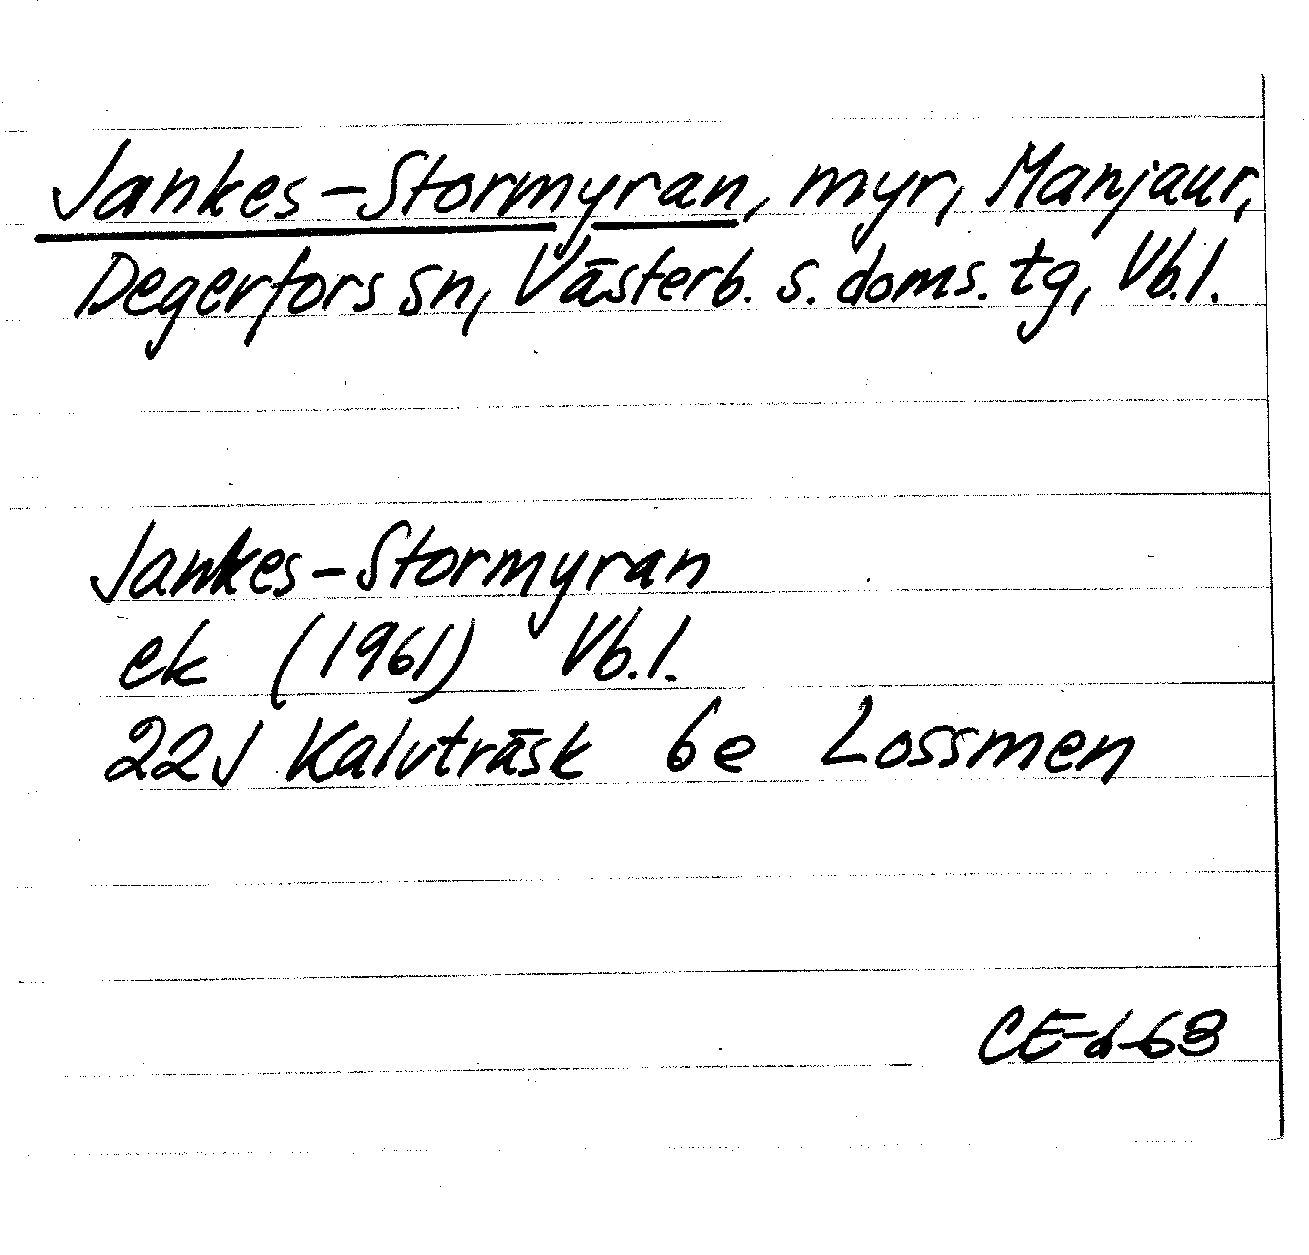 Jankes-Stormyran, myr, Manjaur,
Degerfors sn, Västerb. s. doms. tg, Vb.l.
Jankes-Stormyran
ek (1961) Vb.l.
22J Kalvträsk 6e Lossmen